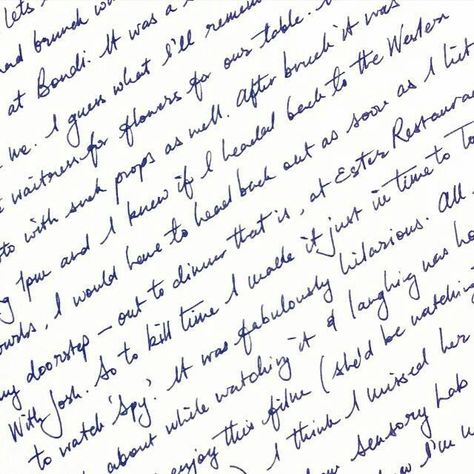 Lets
had brunch
at Bondi. It was a
me. I guess what I'll remem
waitress for flowers for our table.
to with such props as well. After brunch it was
g 1pm and I knew if I headed back to the Western
, I would have to head back out as soon as I hit
my doorstep – out to dinner that is, at Ester Restaura
With Josh. So to kill time I made it just in time to To
to watch 'Spy'. It was fabulously hilarious. All
about while watching it & laughing was ho
enjoy this film (she'd be watching
) I think I missed her
Sensory Lab
I'm